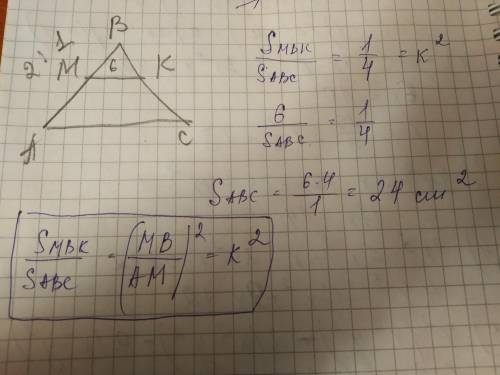 B
1
2
M 6 K
A C
S_MBK / S_ABC = 1/4 = K²
6 / S_ABC = 1/4
S_ABC = 6·4 / 1 = 24 см²
S_MBK / S_ABC = (MB / AM)² = K²